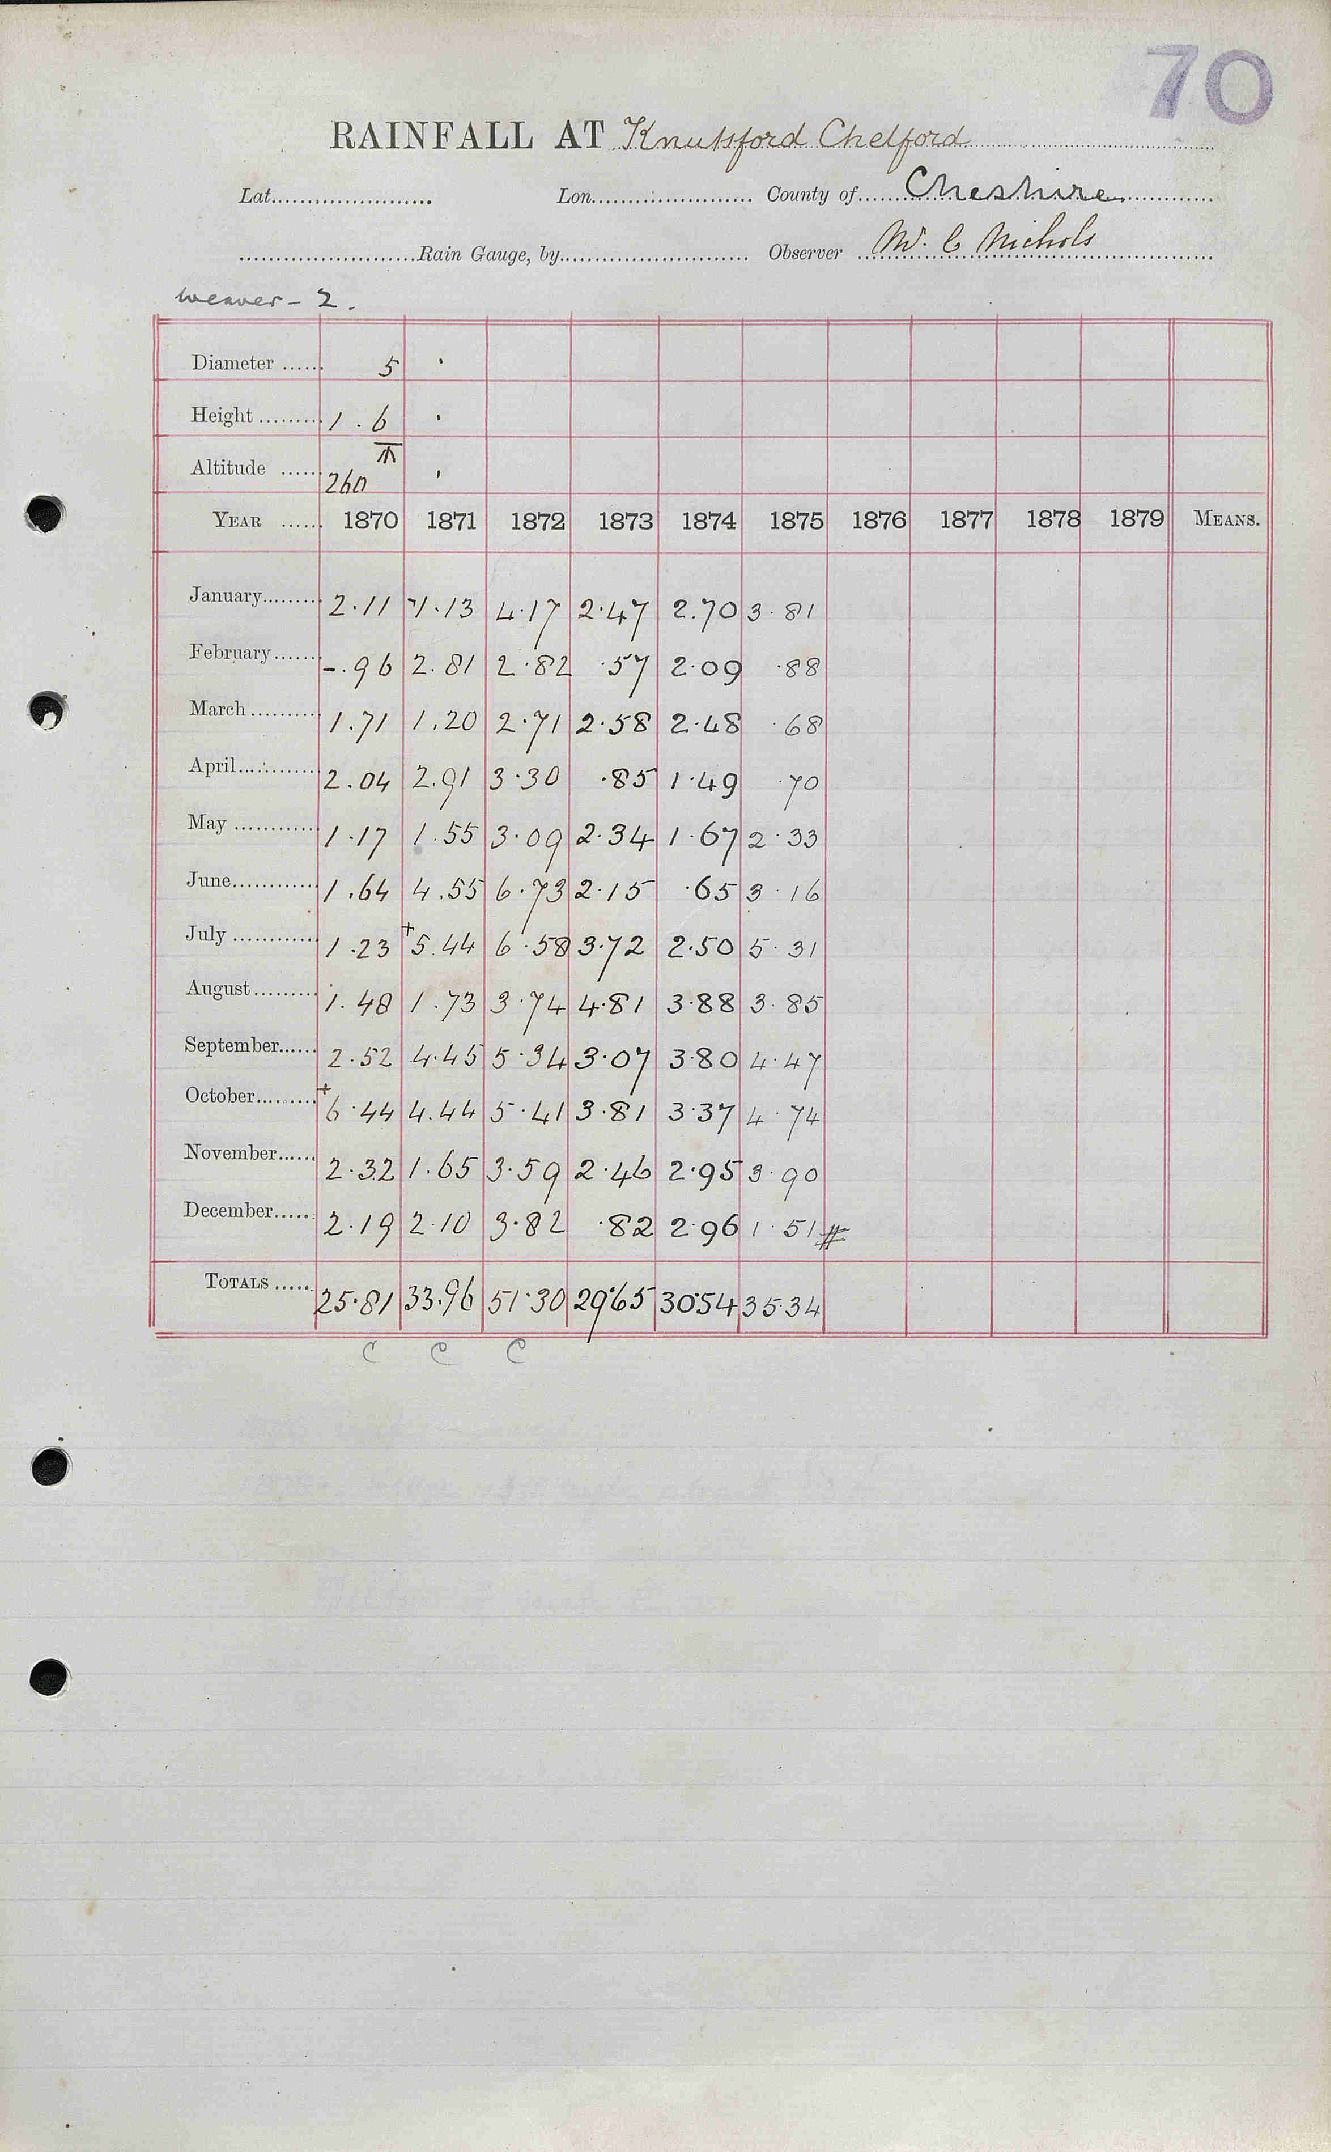 70
RAINFALL AT Knutsford Chelford
Lat. Lon. County of Cheshire
Rain Gauge, by Observer W. C Nichols
weaver - 2.
Diameter 5 .
Height 1 . 6 .
Altitude 260 .
YEAR 1870 1871 1872 1873 1874 1875 1876 1877 1878 1879 MEANS.
January 2.11 1.13 4.17 2.47 2.70 3.81
February -.96 2.81 2.82 .57 2.09 .88
March 1.71 1.20 2.71 2.58 2.48 .68
April 2.04 2.91 3.30 .85 1.49 .70
May 1.17 1.55 3.09 2.34 1.67 2.33
June 1.64 4.55 6.73 2.15 .65 3.16
July 1.23 +5.44 6.58 3.72 2.50 5.31
August 1.48 1.73 3.74 4.81 3.88 3.85
September 2.52 4.45 5.34 3.07 3.80 4.47
October +6.44 4.44 5.41 3.81 3.37 4.74
November 2.32 1.65 3.59 2.46 2.95 3.90
December 2.19 2.10 3.82 .82 2.96 1.51 #
TOTALS 25.81 33.96 51.30 29.65 30.54 35.34
C C C